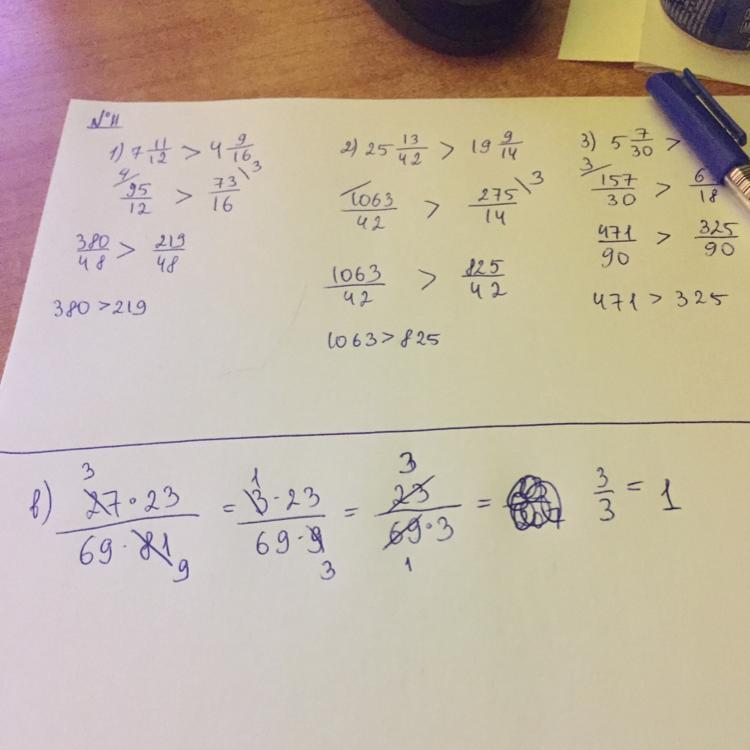 №11
1) 7 11/12 > 4 9/16
4/ 95/12 > 73/16 \3
380/48 > 219/48
380 > 219
2) 25 13/42 > 19 9/14
/ 1063/42 > 275/14 \3
1063/42 > 825/42
1063 > 825
3) 5 7/30 >
3/ 157/30 > 6/18
471/90 > 325/90
471 > 325
в) 27·23/69·81 = 3·23/69·9 = 23/69·3 = 3/3 = 1
3 9 1 3 3 1